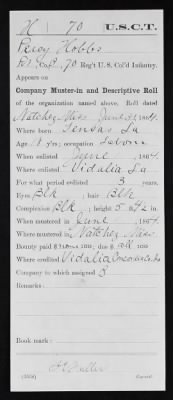 H 70 U.S.C.T.
Percy Hobbs
Pvt. Co. B, 70 Reg't U. S. Col'd Infantry.
Appears on
Company Muster-in and Descriptive Roll
of the organization named above. Roll dated
Natchez Miss June, 1864.
Where born Tensas La
Age 18 y'rs; occupation Labor
When enlisted June, 1864.
Where enlisted Vidalia La
For what period enlisted 3 years.
Eyes Blk; hair Blk
Complexion Blk; height 5 ft. in.
When mustered in June, 1864.
Where mustered in Natchez Miss
Bounty paid $ none 100; due $ all 100
Where credited Vidalia Concordia La
Company to which assigned B
Remarks:
Book mark:
(356) Copyist.